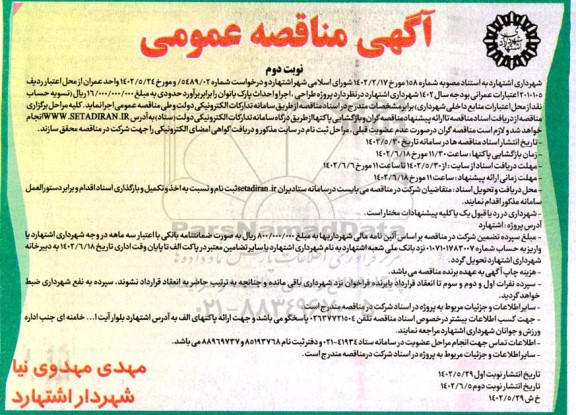 آگهی مناقصه عمومی
نوبت دوم
شهرداری اشتهارد به استناد مصوبه شماره ۱۵۸ مورخ ۱۴۰۲/۲/۱۷ شورای اسلامی شهر اشتهارد و درخواست شماره ۵۴۸۹/۰۲ مورخ ۱۴۰۲/۵/۲۴ واحد عمران از محل اعتبار ردیف
۲۰۱۰۱۰۵ اعتبارات عمرانی بودجه سال ۱۴۰۲ شهرداری اشتهارد در نظر دارد پروژه طراحی، اجرا و احداث پارک بانوان را با برآورد حدودی به مبلغ ۱۶/۰۰۰/۰۰۰/۰۰۰ ریال رتسویه حساب
نقد از محل اعتبارات منابع داخلی شهرداری) برابر مشخصات مندرج در اسناد مناقصه از طریق سامانه تدارکات الکترونیکی دولت و طی مناقصه عمومی اجرا نماید. کلیه مراحل برگزاری
مناقصه از دریافت اسناد مناقصه تا ارائه پیشنهاد مناقصه گران و بازگشایی پاکتها از طریق درگاه سامانه تدارکات الکترونیکی دولت (ستاد) به آدرس WWW.SETADIRAN.IR انجام
خواهد شد و لازم است مناقصه گران در صورت عدم عضویت قبلی، مراحل ثبت نام در سایت مذکور و دریافت گواهی امضای الکترونیکی را جهت شرکت در مناقصه محقق سازند.
- تاریخ انتشار اسناد مناقصه ها در سامانه تاریخ ۱۴۰۲/۵/۳۰
- زمان بازگشایی پاکتها: ساعت ۱۱/۳۰ مورخ ۱۴۰۲/۶/۱۸
- مهلت دریافت اسناد از سایت: از ۱۴۰۲/۵/۳۰ تا ساعت ۱۱ مورخ ۱۴۰۲/۶/۶
مهلت زمانی ارائه پیشنهاد: ساعت ۱۱ مورخ ۱۴۰۲/۶/۱۸
- محل دریافت و تحویل اسناد: متقاضیان شرکت در مناقصه می بایست در سامانه ستاد ایران setadiran.ir ثبت نام و نسبت به اخذ و تکمیل و بارگذاری اسناد اقدام و برابر دستورالعمل
سامانه مذکور اقدام نمایند.
- شهرداری در رد یا قبول یک یا کلیه پیشنهادات مختار است.
آدرس پروژه: اشتهارد
- مبلغ سپرده تضمین شرکت در مناقصه بر اساس آئین نامه مالی شهرداریها به مبلغ ۸۰۰/۰۰۰/۰۰۰ ریال به صورت ضمانتنامه بانکی با اعتبار سه ماهه در وجه شهرداری اشتهارد یا
واریز به حساب شماره ۰۱۰۷۱۰۱۷۸۳۰۰۷ نزد بانک ملی شعبه اشتهارد به نام شهرداری اشتهارد یا سایر تضامین معتبر در پاکت الف تا پایان وقت اداری تاریخ ۱۴۰۲/۶/۱۸ به دبیرخانه
شهرداری اشتهارد تحویل گردد.
- هزینه چاپ آگهی به عهده برنده مناقصه می باشد.
- سپرده نفرات اول و دوم و سوم تا انعقاد قرارداد با برنده فراخوان نزد شهرداری باقی مانده و چنانچه به ترتیب حاضر به انعقاد قرارداد نشوند، سپرده به نفع شهرداری ضبط
خواهد گردید.
- سایر اطلاعات و جزئیات مربوط به پروژه در اسناد شرکت در مناقصه مندرج است
- جهت کسب اطلاعات بیشتر در خصوص اسناد مناقصه تلفن ۰۲۶۳۷۷۲۱۵۰۴ پاسخگو می باشد و جهت ارائه پاکتهای الف به آدرس اشتهارد بلوار آیت ا... خامنه ای جنب اداره
ورزش و جوانان شهرداری اشتهارد مراجعه نمایند.
- اطلاعات تماس جهت انجام مراحل عضویت در سامانه ستاد ۴۱۹۳۴-۰۲۱ و دفتر ثبت نام ۸۵۱۹۳۷۶۸ و ۸۸۹۶۹۷۳۷ می باشد.
- سایر اطلاعات و جزئیات مربوط به پروژه در اسناد شرکت در مناقصه مندرج است.
تاریخ انتشار نوبت اول ۱۴۰۲/۵/۲۹
تاریخ انتشار نوبت دوم ۱۴۰۲/۶/۵
خ ش ۱۴۰۲/۵/۲۹
مهدی مهدوی نیا
شهردار اشتهارد